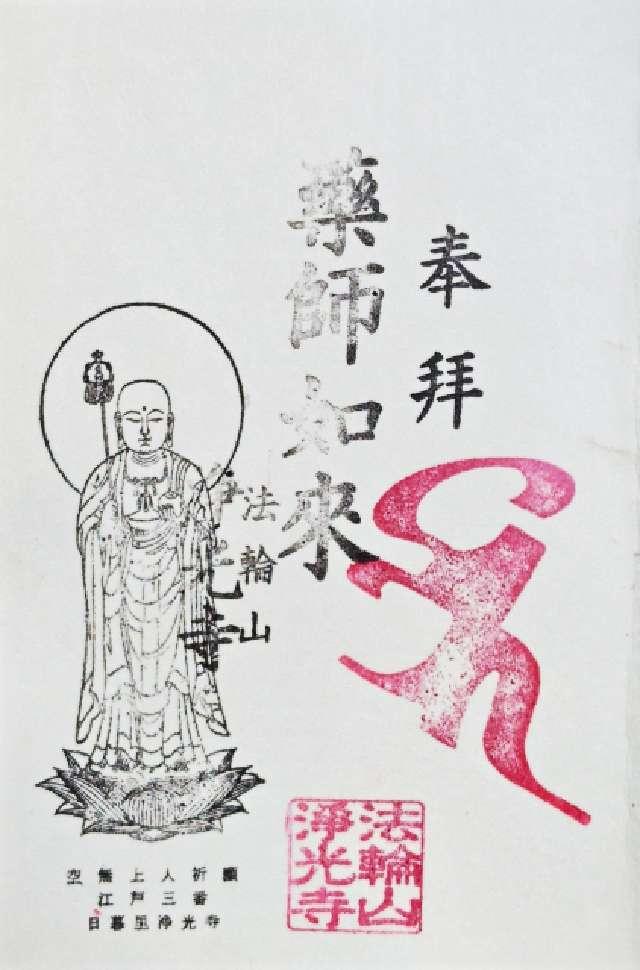 奉拝
藥師如來
法輪山
浄光寺
法輪山
浄光寺
空無上人祈願
江戸三番
日暮里浄光寺